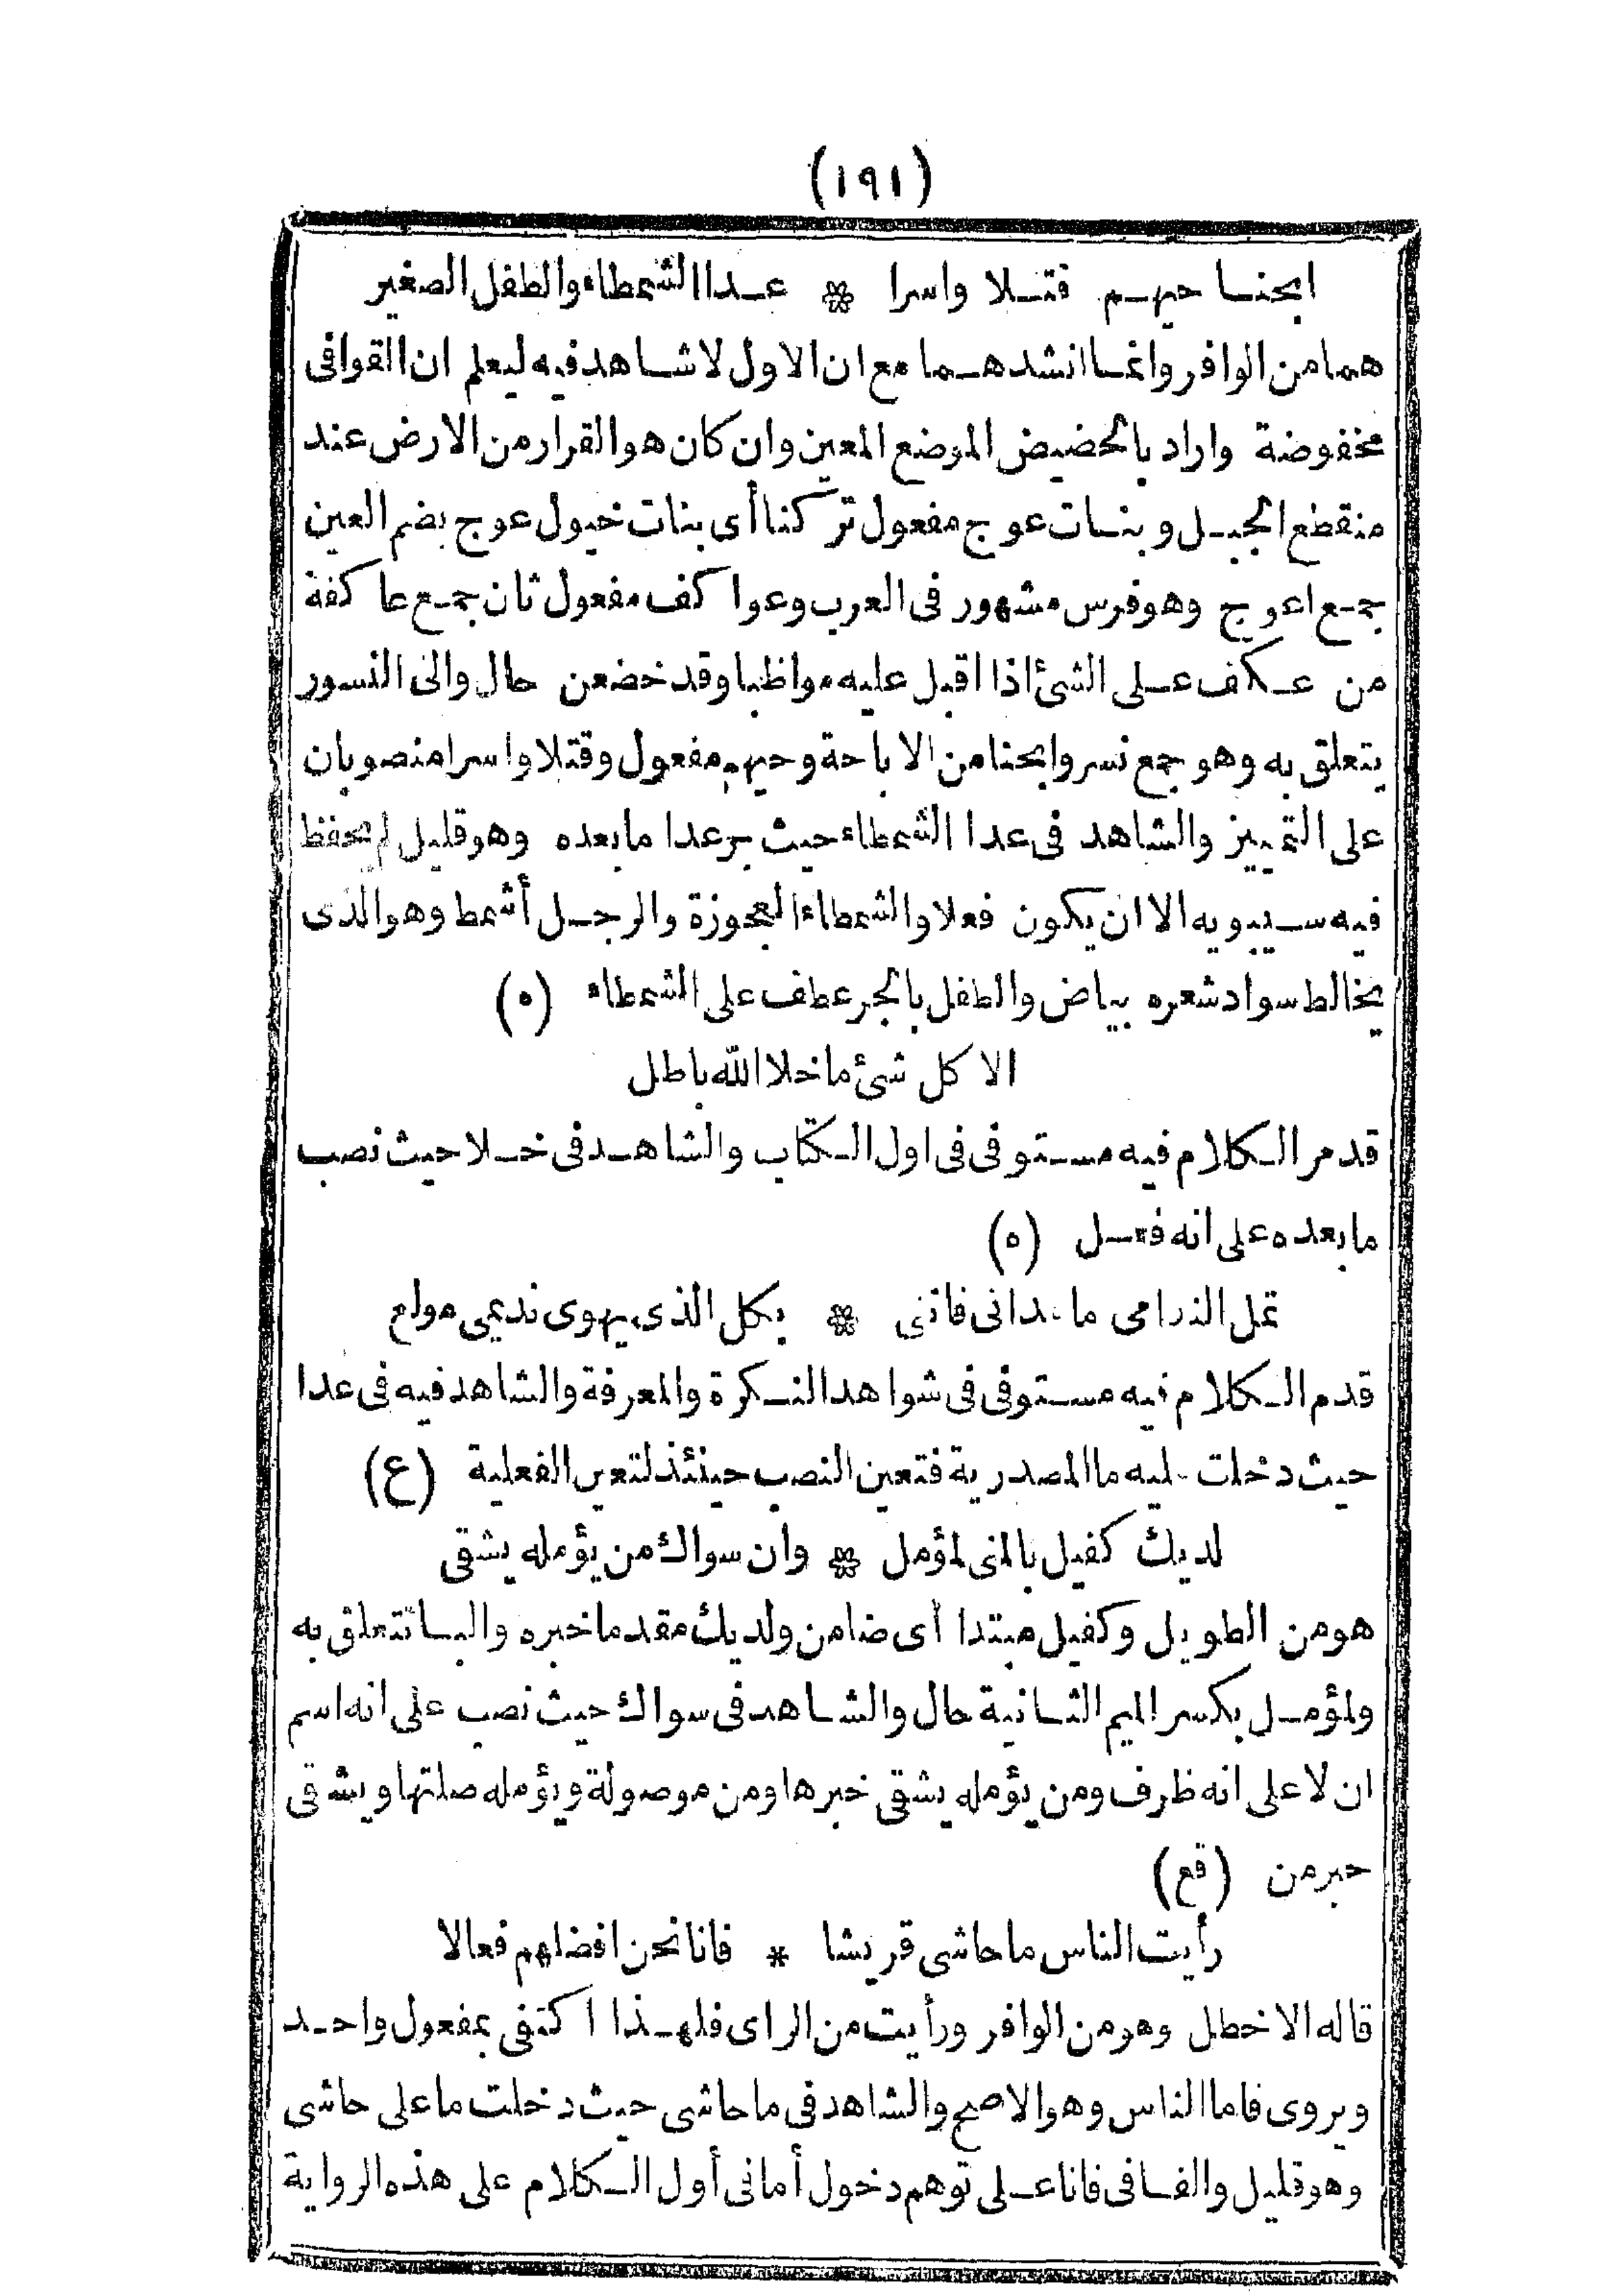 (١٩١)
ابحنا حيهم قتلا واسرا * عدا الشمطاء والطفل الصغير
هما من الوافر وانما انشدهما مع ان الاول لا شاهد فيه ليعلم ان القوافى
مخفوضة واراد بالحضيض الموضع المعين وان كان هو القرار من الارض عند
منقطع الجبل وبنات عوج مفعول تركنا أى بنات خيول عوج بضم العين
جمع اعوج وهو فرس مشهور فى العرب وعواكف مفعول ثان جمع عاكفة
من عكف على الشئ اذا اقبل عليه مواظبا وقد خضعن حال والى النسور
يتعلق به وهو جمع نسر وابحنا من الاباحة وحيهم مفعول وقتلا واسرا منصوبان
على التمييز والشاهد فى عدا الشمطاء حيث جر عدا ما بعده وهو قليل لم يحفظ
فيه سيبويه الا ان يكون فعلا والشمطاء العجوزة والرجل أشمط وهو الذى
يخالط سواد شعره بياض والطفل بالجر عطف على الشمطاء (ه)
الا كل شئ ما خلا الله باطل
قد مر الكلام فيه مستوفى فى اول الكتاب والشاهد فى خلا حيث نصب
ما بعده على انه فعل (ه)
تمل الندامى ما عدانى فاننى * بكل الذى يهوى نديمى مولع
قدم الكلام فيه مستوفى فى شواهد النكرة والمعرفة والشاهد فيه فى عدا
حيث دخلت عليه ما المصدرية فتعين النصب حينئذ لتعين الفعلية (ع)
لديك كفيل بالمنى لمؤمل * وان سواك من يؤمله يشقى
هو من الطويل وكفيل مبتدا أى ضامن ولديك مقدما خبره والبا تتعلق به
ولمؤمل بكسر الميم الثانية حال والشاهد فى سواك حيث نصب على انه اسم
ان لا على انه ظرف ومن يؤمله يشقى خبرها ومن موصولة ويؤمله صلتها ويشقى
خبر من (قع)
رأيت الناس ما حاشى قريشا * فانا نحن افضلهم فعالا
قاله الاخطل وهو من الوافر ورأيت من الراى فلهذا اكتفى بمفعول واحد
ويروى فاما الناس وهو الاصح والشاهد فى ما حاشى حيث دخلت ما على حاشى
وهو قليل والفا فى فانا على توهم دخول أما فى أول الكلام على هذه الرواية